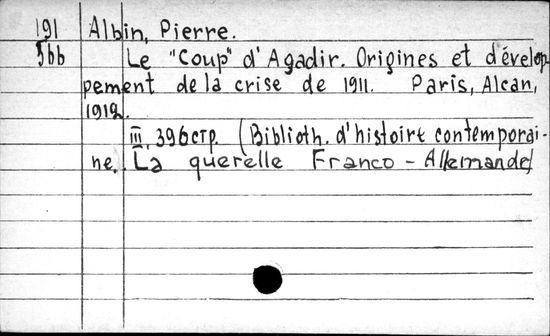 191 Albin, Pierre.
566 Le "Coup" d'Agadir. Origines et dévelop-
pement de la crise de 1911. Paris, Alcan,
1912.
III, 396 стр. (Biblioth. d'histoire contemporai-
ne. La querelle Franco-Allemande)